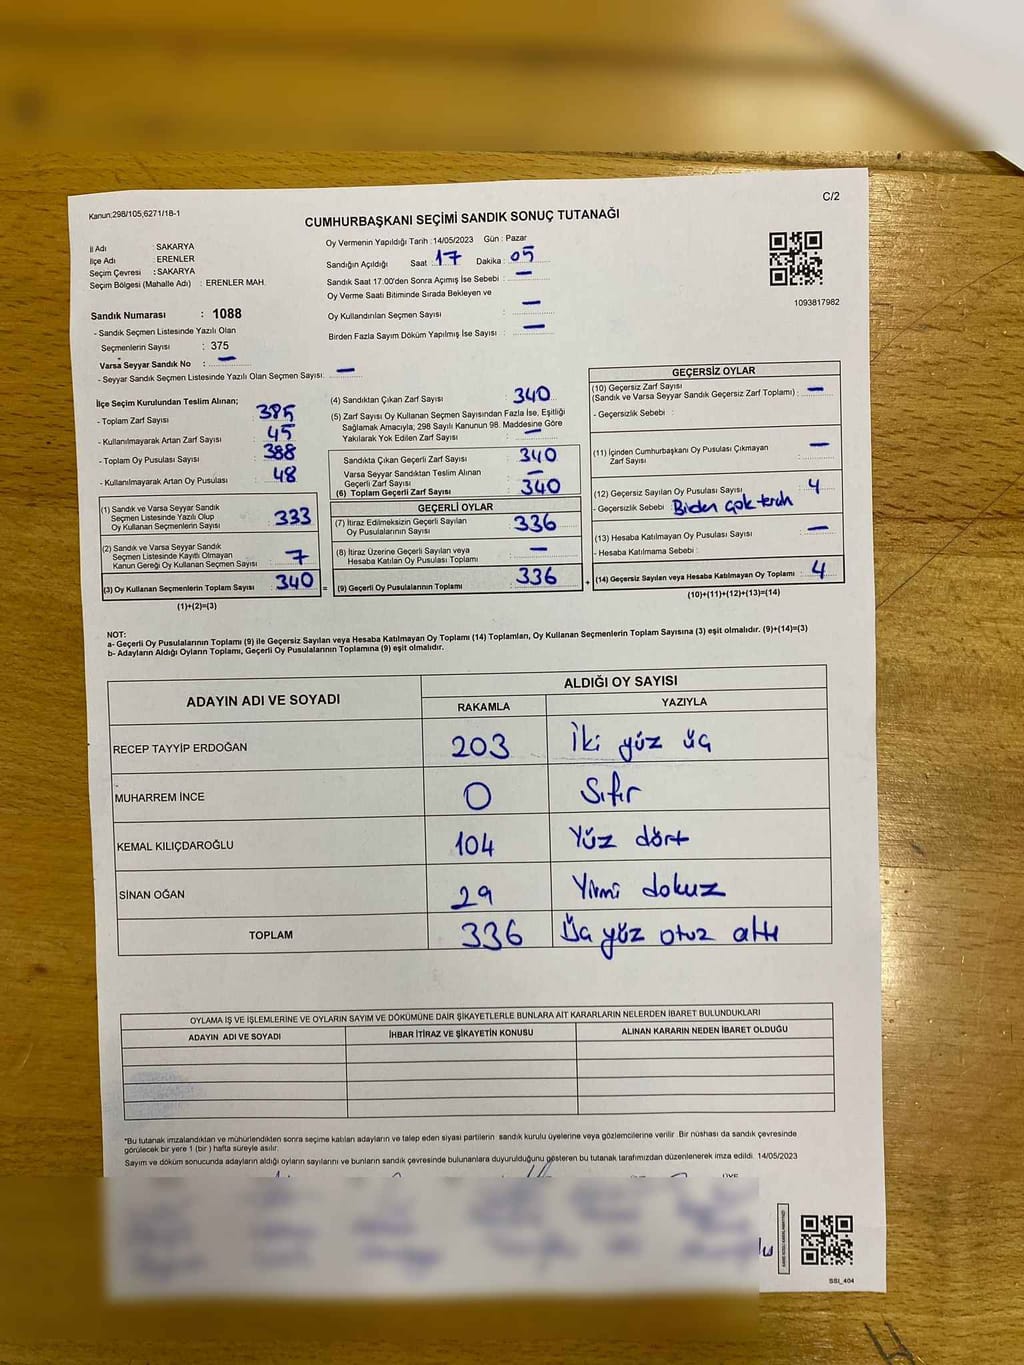 Kanun:298/105,6271/18-1
C/2
CUMHURBAŞKANI SEÇİMİ SANDIK SONUÇ TUTANAĞI
İl Adı : SAKARYA
İlçe Adı : ERENLER
Seçim Çevresi : SAKARYA
Seçim Bölgesi (Mahalle Adı) : ERENLER MAH.
Sandık Numarası : 1088
- Sandık Seçmen Listesinde Yazılı Olan
Seçmenlerin Sayısı : 375
Varsa Seyyar Sandık No : —
- Seyyar Sandık Seçmen Listesinde Yazılı Olan Seçmen Sayısı: —
Oy Vermenin Yapıldığı Tarih :14/05/2023 Gün : Pazar
Sandığın Açıldığı Saat : 17 Dakika : 05
Sandık Saat 17:00'den Sonra Açımış İse Sebebi : —
Oy Verme Saati Bitiminde Sırada Bekleyen ve
Oy Kullandırılan Seçmen Sayısı : —
Birden Fazla Sayım Döküm Yapılmış İse Sayısı : —
1093817982
İlçe Seçim Kurulundan Teslim Alınan;
- Toplam Zarf Sayısı : 385
- Kullanılmayarak Artan Zarf Sayısı : 45
- Toplam Oy Pusulası Sayısı : 388
- Kullanılmayarak Artan Oy Pusulası : 48
(1) Sandık ve Varsa Seyyar Sandık
Seçmen Listesinde Yazılı Olup
Oy Kullanan Seçmenlerin Sayısı : 333
(2) Sandık ve Varsa Seyyar Sandık
Seçmen Listesinde Kayıtlı Olmayan
Kanun Gereği Oy Kullanan Seçmen Sayısı : 7
(3) Oy Kullanan Seçmenlerin Toplam Sayısı : 340
(1)+(2)=(3)
(4) Sandıktan Çıkan Zarf Sayısı : 340
(5) Zarf Sayısı Oy Kullanan Seçmen Sayısından Fazla İse, Eşitliği
Sağlamak Amacıyla; 298 Sayılı Kanunun 98. Maddesine Göre
Yakılarak Yok Edilen Zarf Sayısı : —
Sandıkta Çıkan Geçerli Zarf Sayısı : 340
Varsa Seyyar Sandıktan Teslim Alınan
Geçerli Zarf Sayısı : —
(6) Toplam Geçerli Zarf Sayısı : 340
GEÇERLİ OYLAR
(7) İtiraz Edilmeksizin Geçerli Sayılan
Oy Pusulalarının Sayısı : 336
(8) İtiraz Üzerine Geçerli Sayılan veya
Hesaba Katılan Oy Pusulası Toplamı : —
(9) Geçerli Oy Pusulalarının Toplamı : 336
GEÇERSİZ OYLAR
(10) Geçersiz Zarf Sayısı
(Sandık ve Varsa Seyyar Sandık Geçersiz Zarf Toplamı) : —
- Geçersizlik Sebebi :
(11) İçinden Cumhurbaşkanı Oy Pusulası Çıkmayan
Zarf Sayısı : —
(12) Geçersiz Sayılan Oy Pusulası Sayısı : 4
- Geçersizlik Sebebi : Birden çok tercih
(13) Hesaba Katılmayan Oy Pusulası Sayısı : —
- Hesaba Katılmama Sebebi :
(14) Geçersiz Sayılan veya Hesaba Katılmayan Oy Toplamı : 4
(10)+(11)+(12)+(13)=(14)
NOT:
a- Geçerli Oy Pusulalarının Toplamı (9) ile Geçersiz Sayılan veya Hesaba Katılmayan Oy Toplamı (14) Toplamları, Oy Kullanan Seçmenlerin Toplam Sayısına (3) eşit olmalıdır. (9)+(14)=(3)
b- Adayların Aldığı Oyların Toplamı, Geçerli Oy Pusulalarının Toplamına (9) eşit olmalıdır.
ADAYIN ADI VE SOYADI ALDIĞI OY SAYISI
RAKAMLA YAZIYLA
RECEP TAYYİP ERDOĞAN 203 İki yüz üç
MUHARREM İNCE 0 Sıfır
KEMAL KILIÇDAROĞLU 104 Yüz dört
SİNAN OĞAN 29 Yirmi dokuz
TOPLAM 336 Üç yüz otuz altı
OYLAMA İŞ VE İŞLEMLERİNE VE OYLARIN SAYIM VE DÖKÜMÜNE DAİR ŞİKAYETLERLE BUNLARA AİT KARARLARIN NELERDEN İBARET BULUNDUKLARI
ADAYIN ADI VE SOYADI İHBAR İTİRAZ VE ŞİKAYETİN KONUSU ALINAN KARARIN NEDEN İBARET OLDUĞU
*Bu tutanak imzalandıktan ve mühürlendikten sonra seçime katılan adayların ve talep eden siyasi partilerin sandık kurulu üyelerine veya gözlemcilerine verilir. Bir nüshası da sandık çevresinde
görülecek bir yere 1 (bir ) hafta süreyle asılır.
Sayım ve döküm sonucunda adayların aldığı oyların sayılarını ve bunların sandık çevresinde bulunanlara duyurulduğunu gösteren bu tutanak tarafımızdan düzenlenerek imza edildi. 14/05/2023
ÜYE
SSI_404